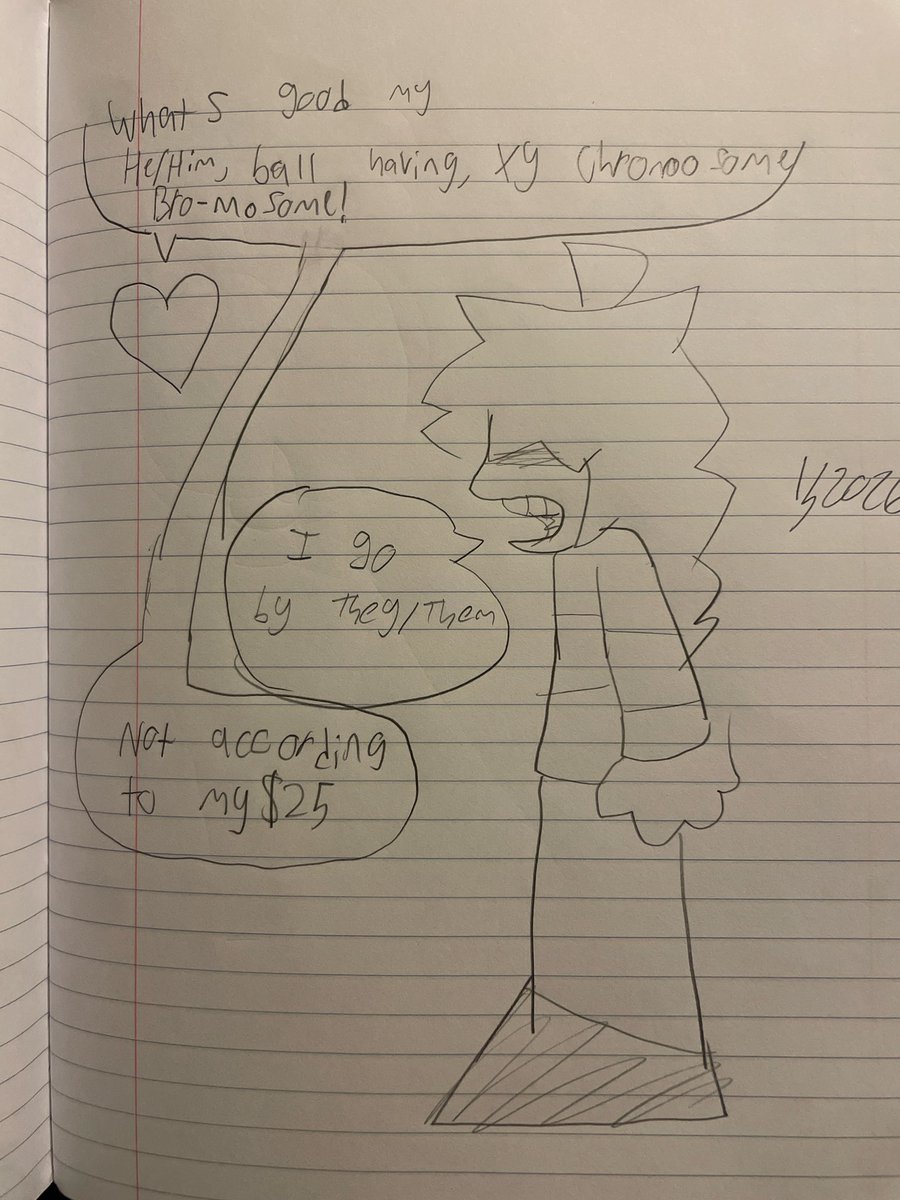 What s good my
He/Him, ball having, XY Chromoosome
Bro-mosome!
I go
by They/Them
Not according
to my $25
1/2026